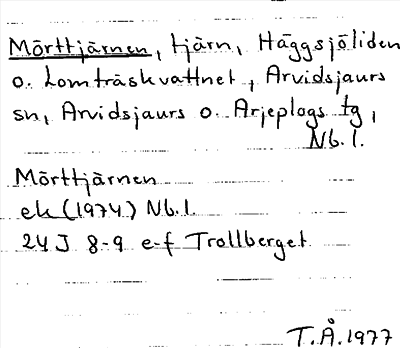 Mörttjärnen, tjärn, Häggsjöliden
o. Lomträskvattnet, Arvidsjaurs
sn, Arvidsjaurs o. Arjeplogs tg,
Nb.l.
Mörttjärnen
ek (1974) Nb.l.
24J 8-9 e-f Trollberget
T.Å.1977